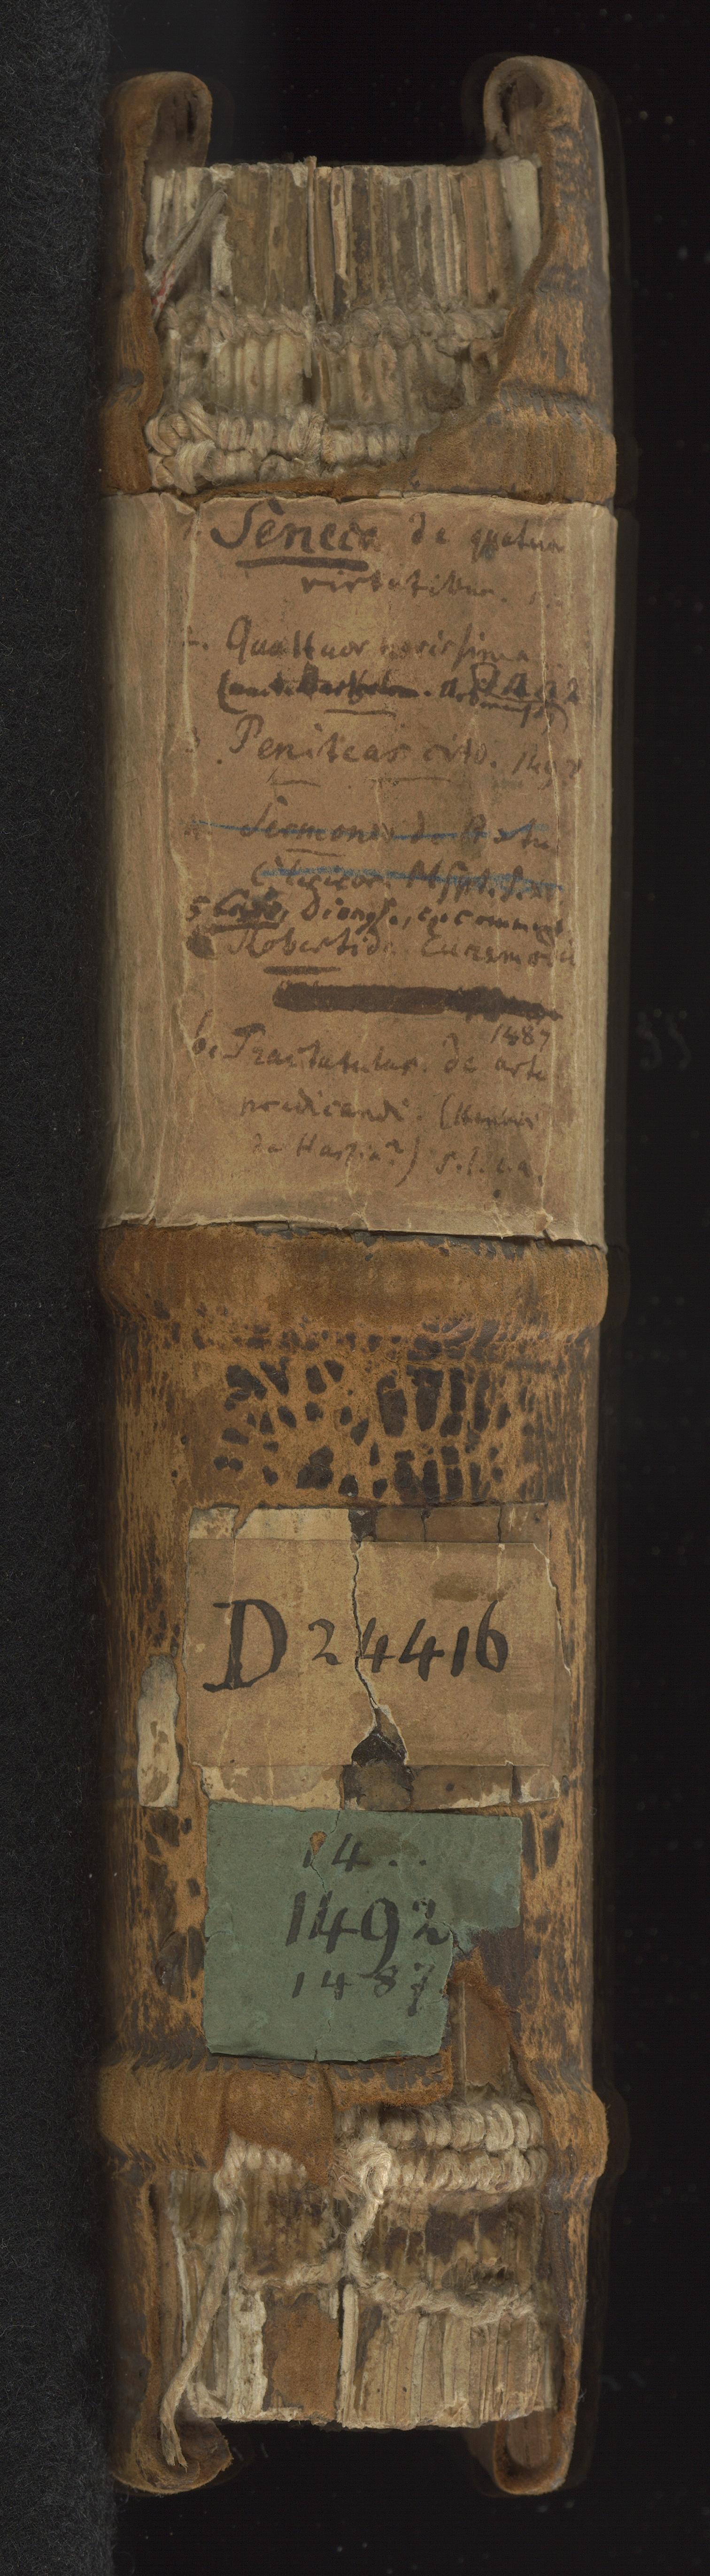 1. Seneca de quatuor
virtutibus.
2. Quattuor novissima
1492
3. Peniteas cito. 1492
4. Sermones de
5 Cato, Dionys., cp comment
Roberti de Euremodio
1487
6. Tractatulus de arte
predicandi. (Henrici
de Hassia?) s. l. e. a.
D 24416
14 . .
1492
1487